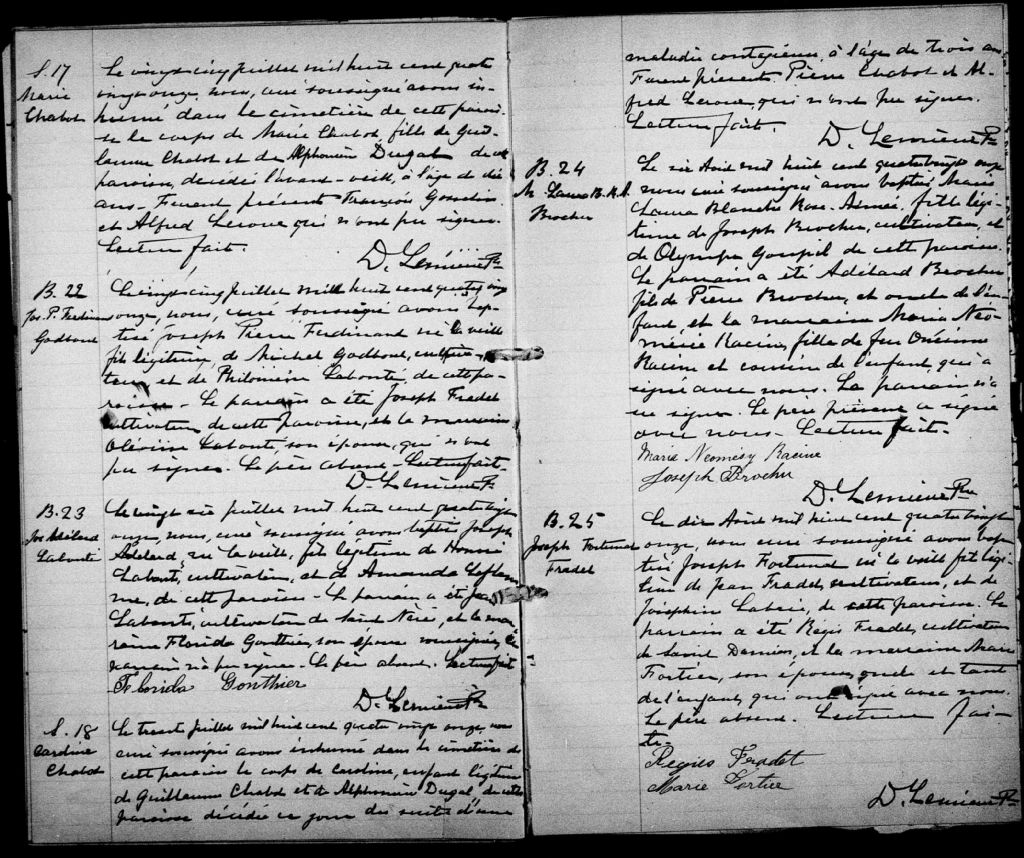 S. 17
Marie
Chabot
Le vingt cinq Juillet mil huit cent quatre
vingt onze, nous, curé soussigné avons in-
humé dans le cimetière de cette parois-
se le corps de Marie Chabot, fille de Guil-
laume Chabot et de Alphonsine Dugal de cette
paroisse, décédée l'avant-veille, à l'âge de dix
ans. Furent présents François Gosselin
et Alfred Leroux qui n'ont pu signer.
Lecture fait.
D. Lemieux Ptre
B. 22
Jos. P. Ferdinand
Godbout
Le vingt cinq Juillet mill huit cent quatre vingt
onze, nous, curé soussigné avons bap-
tisé Joseph Pierre Ferdinand né la veille
fils légitime de Michel Godbout, cultiva-
teur et de Philomène Labonté de cette pa-
roisse. Le parrain a été Joseph Fradet
cultivateur de cette paroisse, et la marraine
Labonté, son épouse, qui n'ont
pu signer. Le père absent. Lecture fait.
D. Lemieux Ptr
B. 23
Jos Adélard
Labonté
Le vingt six juillet mil huit cent quatre vingt
onze, nous, curé soussigné avons baptisé Joseph
Adelard né la veille, fils légitime de Honoré
Labonté, cultivateur, et de Amanda Leflam-
me, de cette paroisse. Le parrain a été
Labonté, cultivateur de Saint Néré, et la mar-
raine Florida Gonthier, son épouse soussignée, le
parrain n'a pu signer. Le père absent. Lecture fait
Florida Gonthier
D. Lemieux Ptr
S. 18
Caroline
Chabot
Le trente Juillet mil huit cent quatre vingt onze, nous
curé soussigné avons inhumé dans le cimetière de
cette paroisse le corps de Caroline, enfant légitime
de Guillaume Chabot et de Alphonsine Dugal de cette
paroisse décédée ce jour des suites d'une
maladie contagieuse, à l'âge de trois ans
Furent présents Pierre Chabot et Al-
fred Leroux qui n'ont pu signer.
Lecture fait.
D. Lemieux Ptr
B. 24
M. Laura B. R. A.
Brochu
Le six Août mil huit cent quatre vingt onze
nous curé soussigné avons baptisé Marie
Laura Blanche Rose-Aimée, fille légi-
time de Joseph Brochu, cultivateur, et
de Olympe Goupil de cette paroisse.
Le parrain a été Adélard Brochu
fils de Pierre Brochu, et oncle de l'en-
fant, et la marraine Marie Neo-
mésie Racine, fille de feu Onésime
Racine et cousine de l'enfant qui a
signé avec nous. Le parrain n'a
su signer. Le père présent a signé
avec nous. Lecture fait.
Marie Neomésy Racine
Joseph Brochu
D. Lemieux Ptre
B. 25
Joseph Fortunat
Fradet
Le dix Août mil huit cent quatre vingt
onze, nous curé soussigné avons bap-
tisé Joseph Fortunat né la veille fils légi-
time de Jean Fradet, cultivateur, et de
Joséphine de cette paroisse. Le
parrain a été Régis Fradet, cultivateur
de Saint Damien, et la marraine Marie
Fortier, son épouse, oncle et tante
de l'enfant, qui ont signé avec nous.
Le père absent. Lecture fai-
te.
Regius Fradet
Marie Fortier
D. Lemieux Ptr